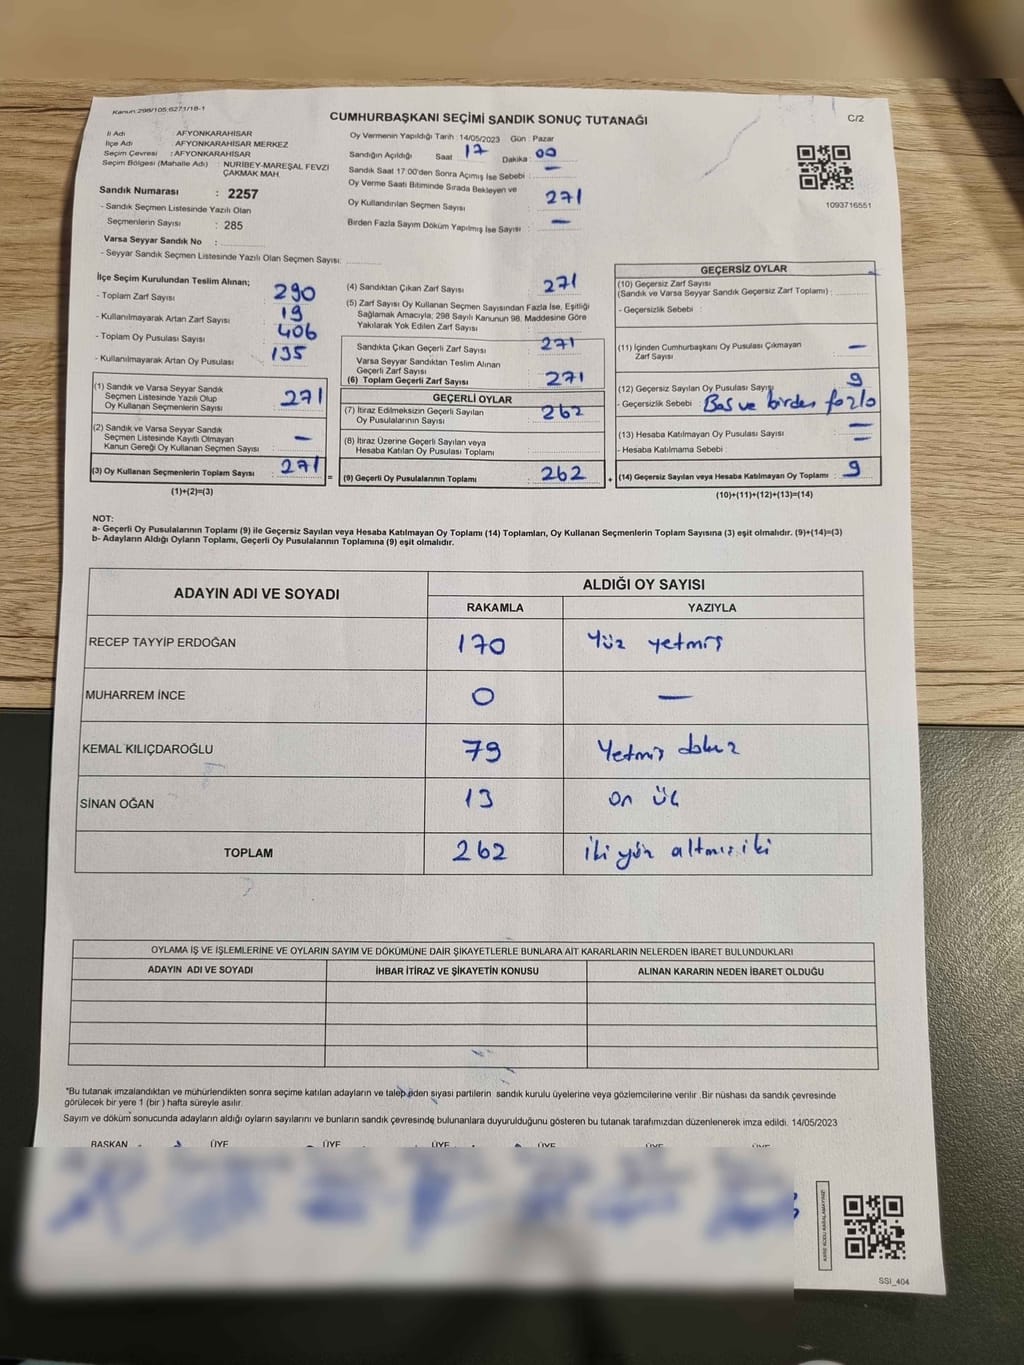 Kanun:298/105:6271/18-1
CUMHURBAŞKANI SEÇİMİ SANDIK SONUÇ TUTANAĞI
C/2
İl Adı : AFYONKARAHİSAR
İlçe Adı : AFYONKARAHİSAR MERKEZ
Seçim Çevresi : AFYONKARAHİSAR
Seçim Bölgesi (Mahalle Adı) : NURİBEY-MAREŞAL FEVZİ
ÇAKMAK MAH.
Sandık Numarası : 2257
- Sandık Seçmen Listesinde Yazılı Olan
Seçmenlerin Sayısı : 285
Varsa Seyyar Sandık No :
- Seyyar Sandık Seçmen Listesinde Yazılı Olan Seçmen Sayısı:
Oy Vermenin Yapıldığı Tarih : 14/05/2023 Gün : Pazar
Sandığın Açıldığı Saat : 17 Dakika : 00
Sandık Saat 17:00'den Sonra Açımış İse Sebebi : —
Oy Verme Saati Bitiminde Sırada Bekleyen ve
Oy Kullandırılan Seçmen Sayısı : 271
Birden Fazla Sayım Döküm Yapılmış İse Sayısı : —
1093716551
İlçe Seçim Kurulundan Teslim Alınan;
- Toplam Zarf Sayısı : 290
- Kullanılmayarak Artan Zarf Sayısı : 19
- Toplam Oy Pusulası Sayısı : 406
- Kullanılmayarak Artan Oy Pusulası : 135
(1) Sandık ve Varsa Seyyar Sandık
Seçmen Listesinde Yazılı Olup
Oy Kullanan Seçmenlerin Sayısı : 271
(2) Sandık ve Varsa Seyyar Sandık
Seçmen Listesinde Kayıtlı Olmayan
Kanun Gereği Oy Kullanan Seçmen Sayısı : —
(3) Oy Kullanan Seçmenlerin Toplam Sayısı : 271
(1)+(2)=(3)
(4) Sandıktan Çıkan Zarf Sayısı : 271
(5) Zarf Sayısı Oy Kullanan Seçmen Sayısından Fazla İse, Eşitliği
Sağlamak Amacıyla; 298 Sayılı Kanunun 98. Maddesine Göre
Yakılarak Yok Edilen Zarf Sayısı :
Sandıkta Çıkan Geçerli Zarf Sayısı : 271
Varsa Seyyar Sandıktan Teslim Alınan
Geçerli Zarf Sayısı
(6) Toplam Geçerli Zarf Sayısı : 271
GEÇERLİ OYLAR
(7) İtiraz Edilmeksizin Geçerli Sayılan
Oy Pusulalarının Sayısı : 262
(8) İtiraz Üzerine Geçerli Sayılan veya
Hesaba Katılan Oy Pusulası Toplamı
(9) Geçerli Oy Pusulalarının Toplamı : 262
GEÇERSİZ OYLAR
(10) Geçersiz Zarf Sayısı
(Sandık ve Varsa Seyyar Sandık Geçersiz Zarf Toplamı) :
- Geçersizlik Sebebi :
(11) İçinden Cumhurbaşkanı Oy Pusulası Çıkmayan
Zarf Sayısı —
(12) Geçersiz Sayılan Oy Pusulası Sayısı 9
- Geçersizlik Sebebi : Boş ve birden fazla
(13) Hesaba Katılmayan Oy Pusulası Sayısı —
- Hesaba Katılmama Sebebi : —
(14) Geçersiz Sayılan veya Hesaba Katılmayan Oy Toplamı : 9
(10)+(11)+(12)+(13)=(14)
NOT:
a- Geçerli Oy Pusulalarının Toplamı (9) ile Geçersiz Sayılan veya Hesaba Katılmayan Oy Toplamı (14) Toplamları, Oy Kullanan Seçmenlerin Toplam Sayısına (3) eşit olmalıdır. (9)+(14)=(3)
b- Adayların Aldığı Oyların Toplamı, Geçerli Oy Pusulalarının Toplamına (9) eşit olmalıdır.
ADAYIN ADI VE SOYADI
ALDIĞI OY SAYISI
RAKAMLA YAZIYLA
RECEP TAYYİP ERDOĞAN 170 Yüz yetmiş
MUHARREM İNCE 0 —
KEMAL KILIÇDAROĞLU 79 Yetmiş dokuz
SİNAN OĞAN 13 on üç
TOPLAM 262 iki yüz altmış iki
OYLAMA İŞ VE İŞLEMLERİNE VE OYLARIN SAYIM VE DÖKÜMÜNE DAİR ŞİKAYETLERLE BUNLARA AİT KARARLARIN NELERDEN İBARET BULUNDUKLARI
ADAYIN ADI VE SOYADI İHBAR İTİRAZ VE ŞİKAYETİN KONUSU ALINAN KARARIN NEDEN İBARET OLDUĞU
*Bu tutanak imzalandıktan ve mühürlendikten sonra seçime katılan adayların ve talep eden siyasi partilerin sandık kurulu üyelerine veya gözlemcilerine verilir .Bir nüshası da sandık çevresinde
görülecek bir yere 1 (bir ) hafta süreyle asılır.
Sayım ve döküm sonucunda adayların aldığı oyların sayılarını ve bunların sandık çevresinde bulunanlara duyurulduğunu gösteren bu tutanak tarafımızdan düzenlenerek imza edildi. 14/05/2023
BAŞKAN ÜYE ÜYE ÜYE ÜYE ÜYE ÜYE
SSI_404